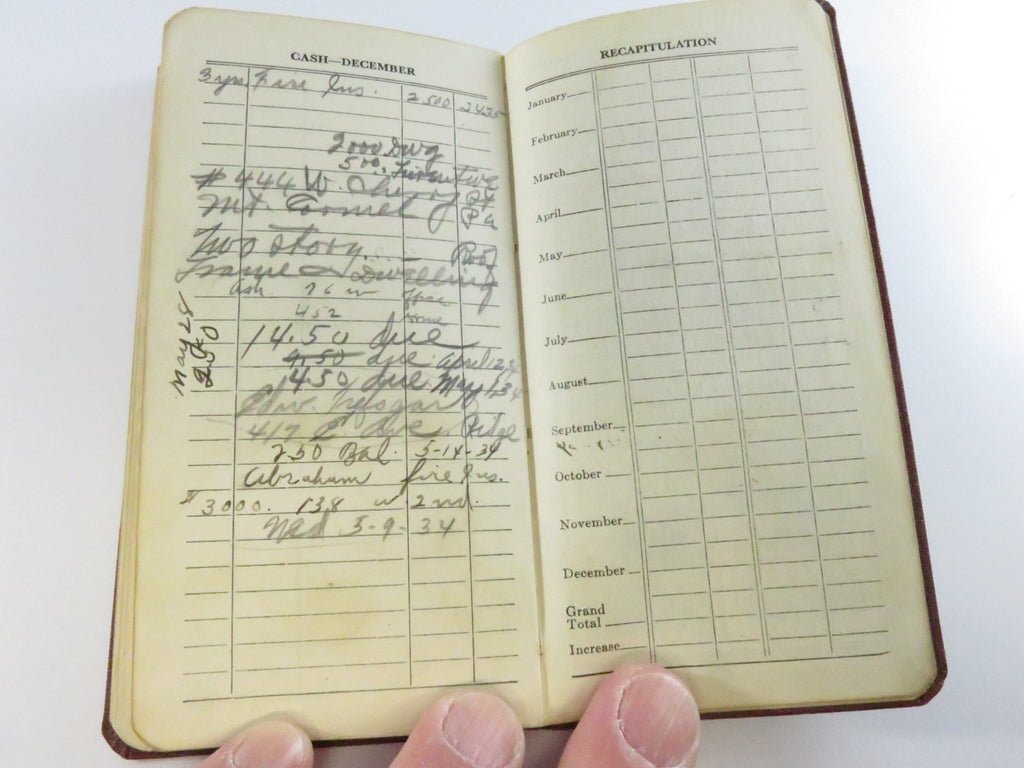 CASH—DECEMBER
3 yrs. Fire Ins. 2,500 24.25
2000 Dwg
500
# 444 W. Cherry St
Mt. Carmel Pa
Two Story Roof
Frame Dwelling
452 Home
14.50 due
9.50 due April 12
14.50 due May 1 34
Edw.
417 E Ave
2.50 Bal. 5-14-34
Abraham fire Ins.
$3000. 138 W 2nd.
Wed 5-9-34
May 28
2.50
RECAPITULATION
January
February
March
April
May
June
July
August
September
October
November
December
Grand
Total
Increase